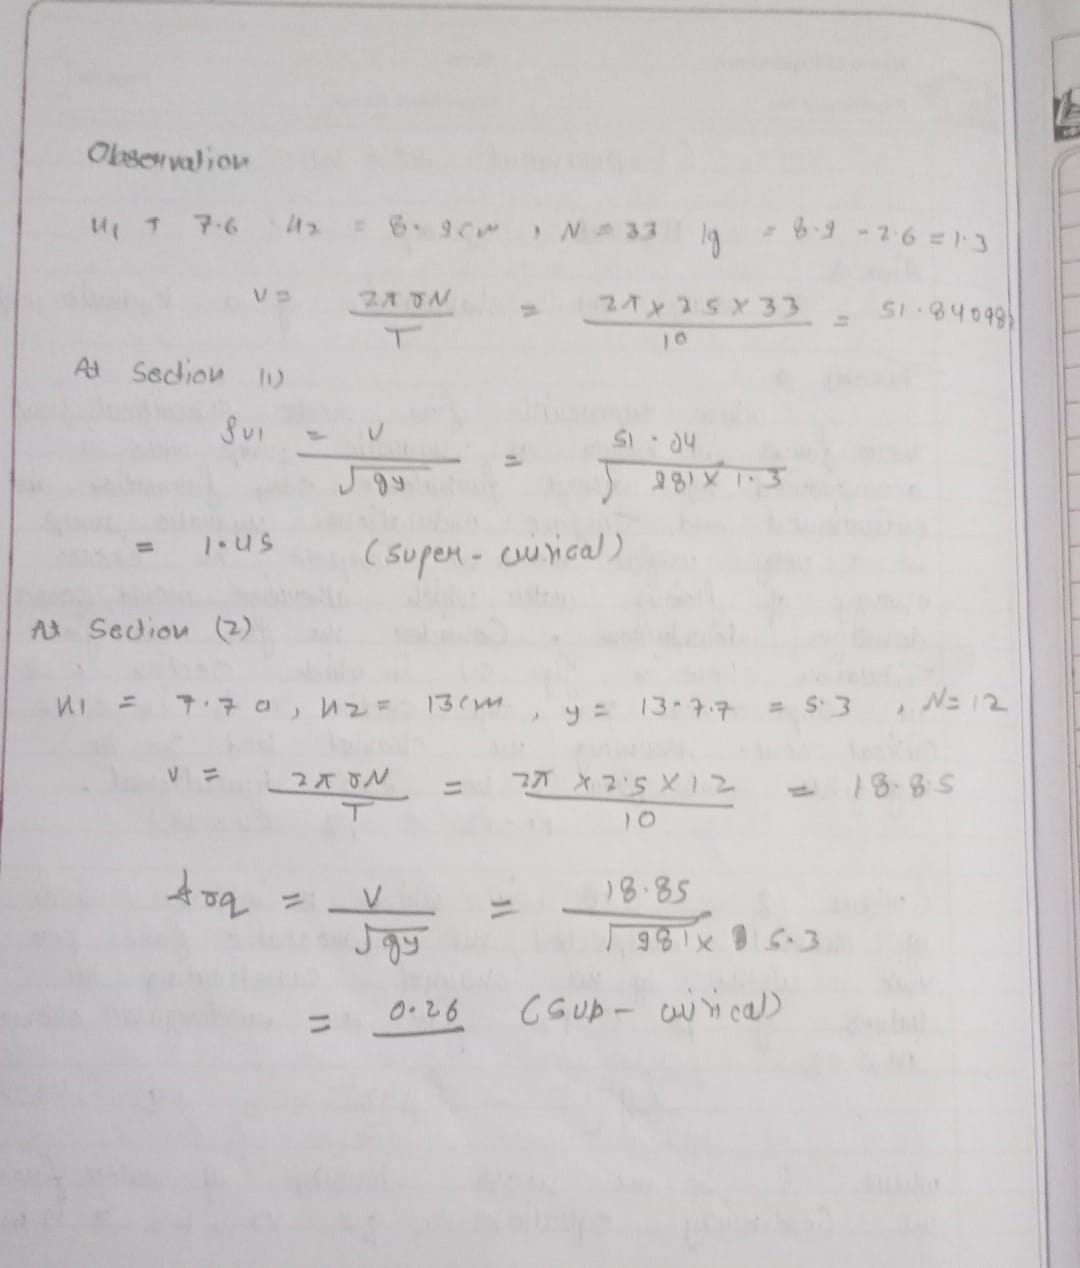 Observation
H1 = 7.6 H2 = 8.9cm , N = 33 y = 8.9 - 7.6 = 1.3
V = 2πrN / T = 2π x 2.5 x 33 / 10 = 51.84098
At Section (1)
fr1 = V / √gy = 51.84 / √981 x 1.3
= 1.45 (super-critical)
At Section (2)
H1 = 7.7 , H2 = 13cm , y = 13-7.7 = 5.3 , N=12
V = 2πrN / T = 2π x 2.5 x 12 / 10 = 18.85
fr2 = V / √gy = 18.85 / √981 x 5.3
= 0.26 (Sub-critical)